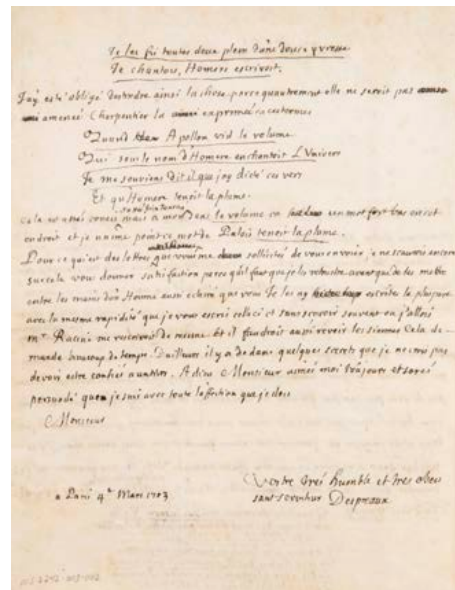 Je les fis toutes deux plein d'une douce yvresse
Je chantois, Homere escrivoit.
J'ay esté obligé d'estendre ainsi la chose parcequ'autrement elle ne seroit pas
amenée. Charpentier la exprimée en ces termes
Quand Apollon vid le volume
Qui sous le nom d'Homere enchantoit L'Univers
Je me souviens dit il que j'ay dicté ces vers
Et qu'Homere tenoit la plume.
Cela est assés concis mais à mon sens le volume est un mot fort bas en cet
endroit et je n'aime point ce mot de Palais tenoit la plume.
Pour ce qui est des lettres que vous me sollicités de vous envoier je ne sçaurois encore
sur cela vous donner satisfaction parce qu'il faut que je les retouche avant que de les mettre
entre les mains d'un Homme aussi eclairé que vous. Je les ay escrites la pluspart
avec la mesme rapidité que je vous escris celleci et sans sçavoir souvent où j'allois
Mr. Racine me recrivoit de mesme et il faudroit aussi revoir les siennes. Cela de-
mande beaucoup de temps. D'ailleurs il y a dedans quelques secrets que je ne crois pas
devoir estre confiés à un tiers. Adieu Monsieur aimés moi toûjours et soyés
persuadé que je suis avec toute l'affection que je dois
Monsieur
Vostre tres humble et tres obeis
sant serviteur
à Paris 4e. Mars 1703
Despreaux